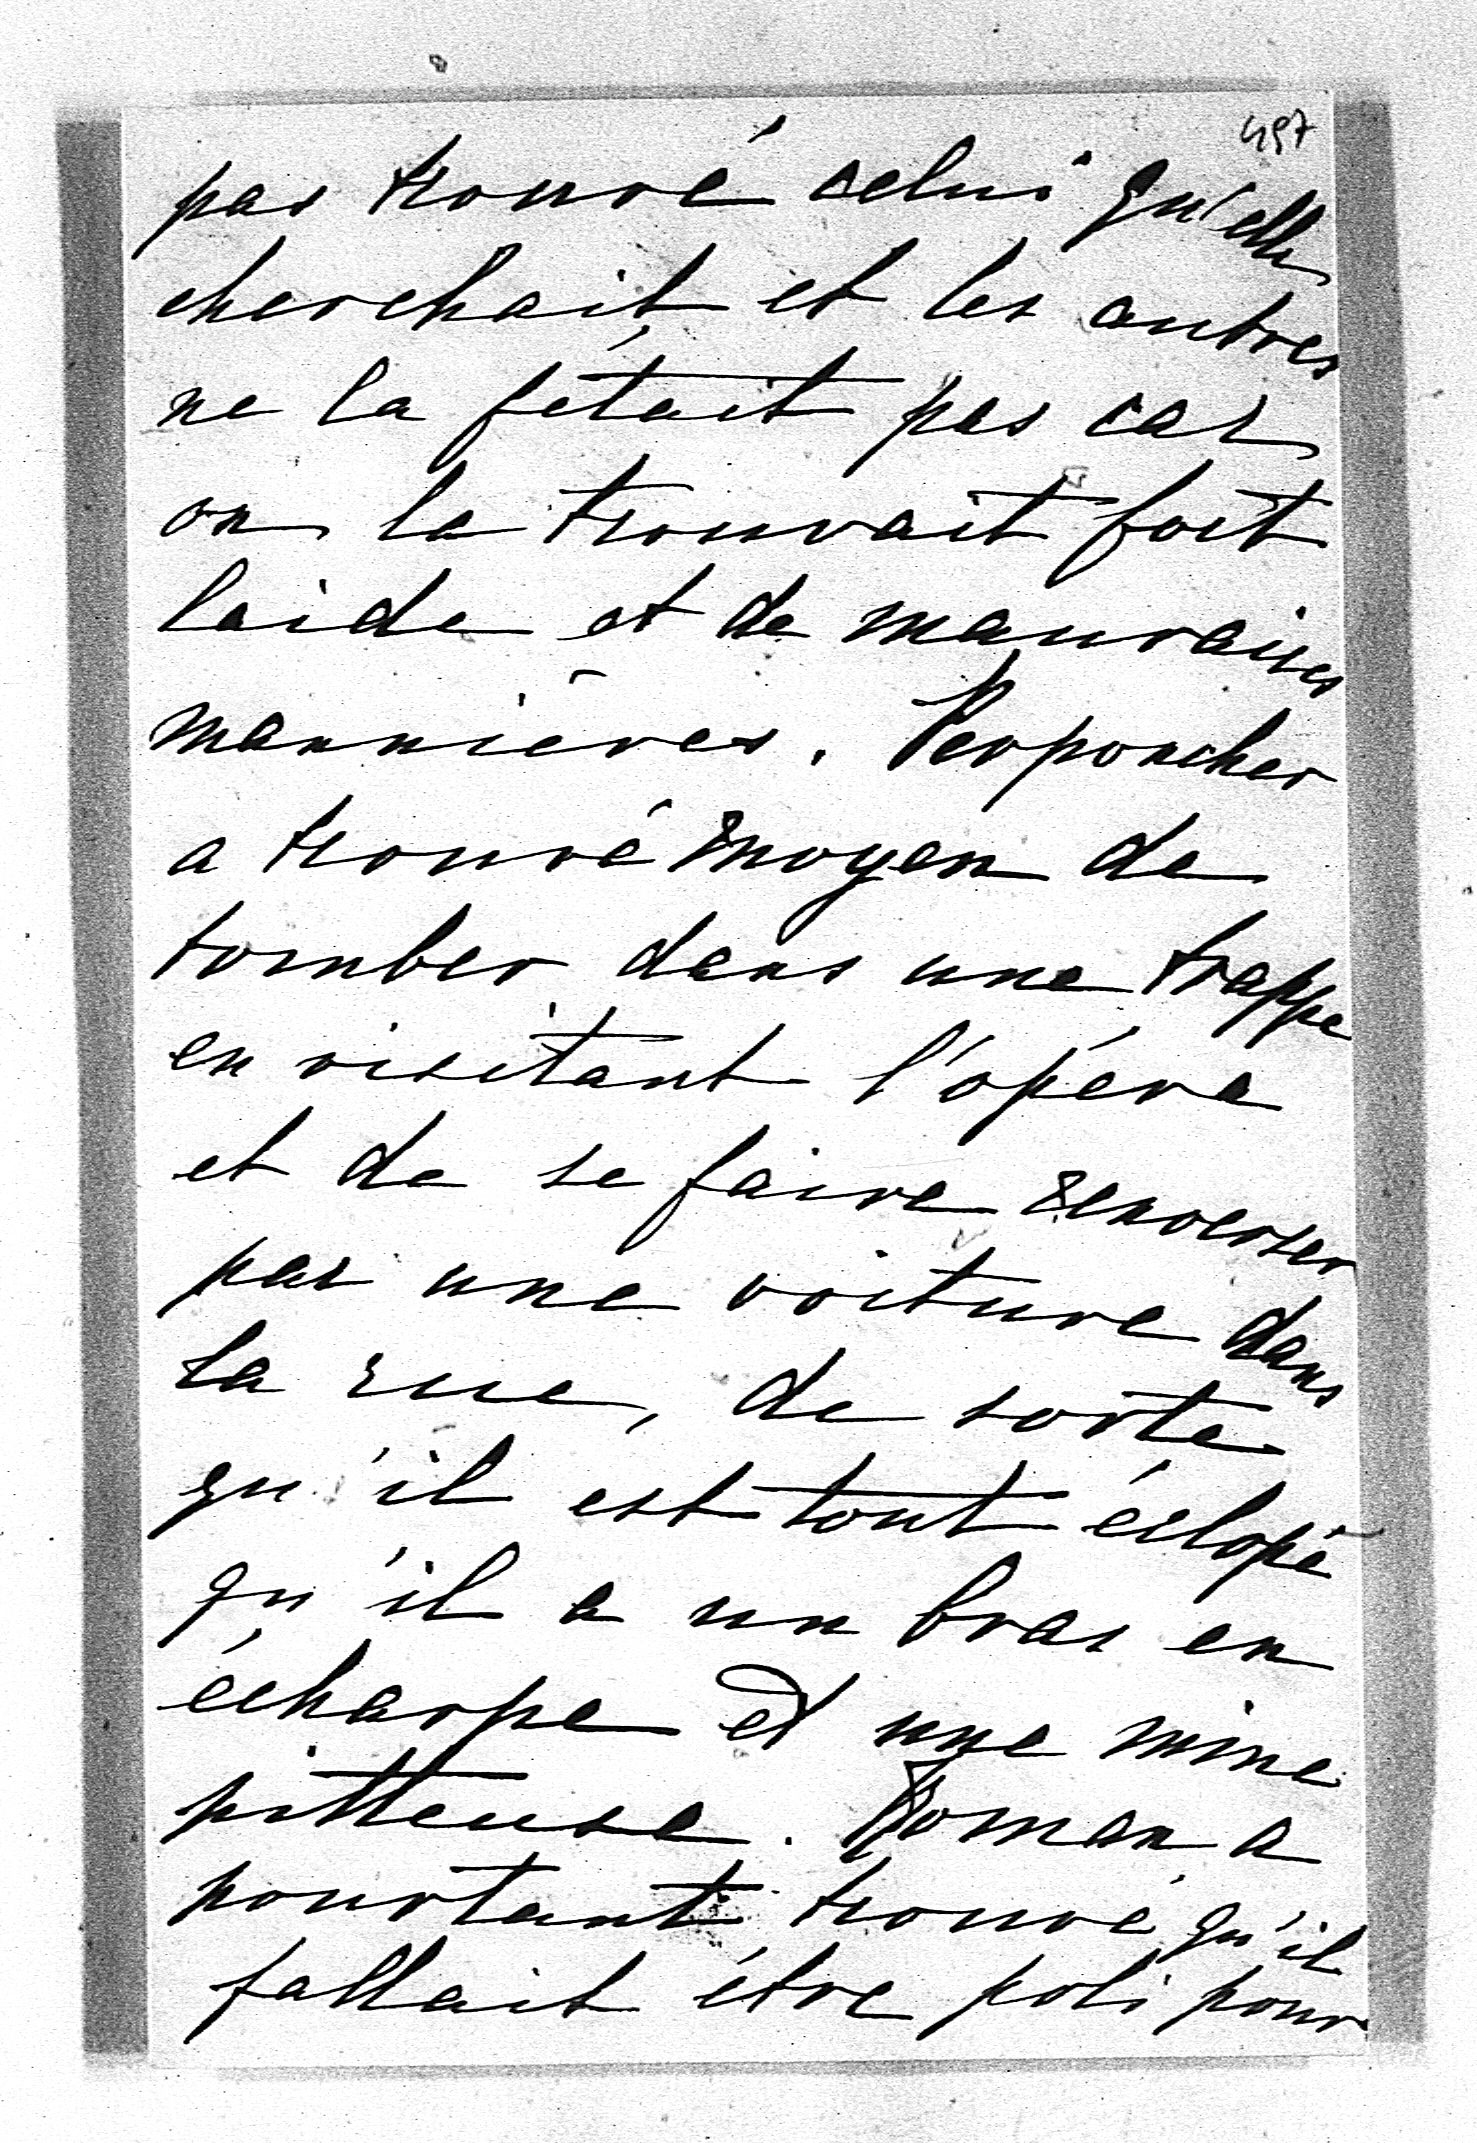 497
pas trouvé celui qu'elle
cherchait et les autres
ne la fétait pas car
on la trouvait fort
laide et de mauvaises
mannières. Perponcher
a trouvé moyen de
tomber dans une trappe
en visitant l'opéra
et de se faire renverser
par une voiture dans
la rue, de sorte
qu'il est tout éclopé
qu'il a un bras en
écharpe et une mine
pitteuse. Roman a
pourtant trouvé qu'il
fallait étre poli pour